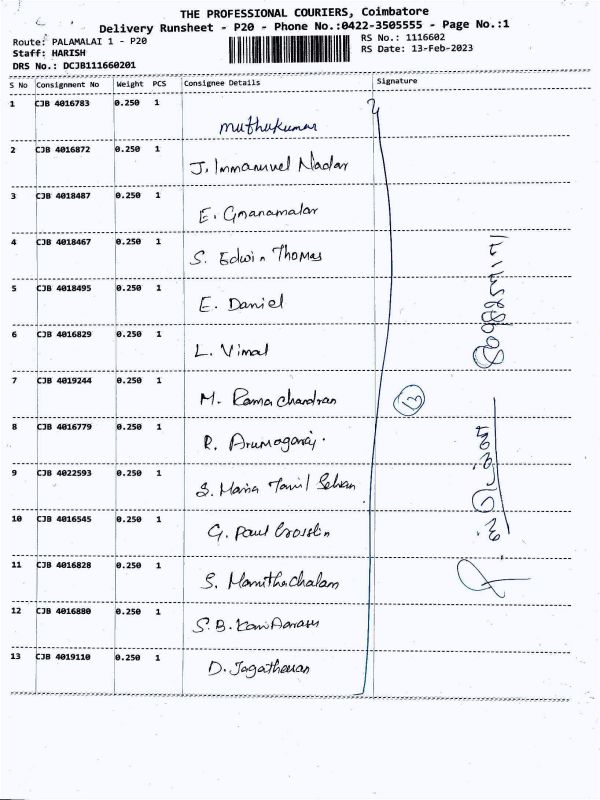 THE PROFESSIONAL COURIERS, Coimbatore
Delivery Runsheet - P20 - Phone No.:0422-3505555 - Page No.:1
Route: PALAMALAI 1 - P20
Staff: HARISH
DRS No.: DCJB111660201
RS No.: 1116602
RS Date: 13-Feb-2023
S No Consignment No Weight PCS Consignee Details Signature
1 CJB 4016783 0.250 1 muthukumar
2 CJB 4016872 0.250 1 J. Immanuvel Nadar
3 CJB 4018487 0.250 1 E. Gnanamalar
4 CJB 4018467 0.250 1 S. Edwin Thomas
5 CJB 4018495 0.250 1 E. Daniel
6 CJB 4016829 0.250 1 L. Vimal
7 CJB 4019244 0.250 1 M. Ramachandran
8 CJB 4016779 0.250 1 R. Arumogaraj.
9 CJB 4022593 0.250 1 S. Maria Tamil Selvan
10 CJB 4016545 0.250 1 G. Paul Crosslin
11 CJB 4016828 0.250 1 S.
12 CJB 4016880 0.250 1 S.B.
13 CJB 4019110 0.250 1 D.
13